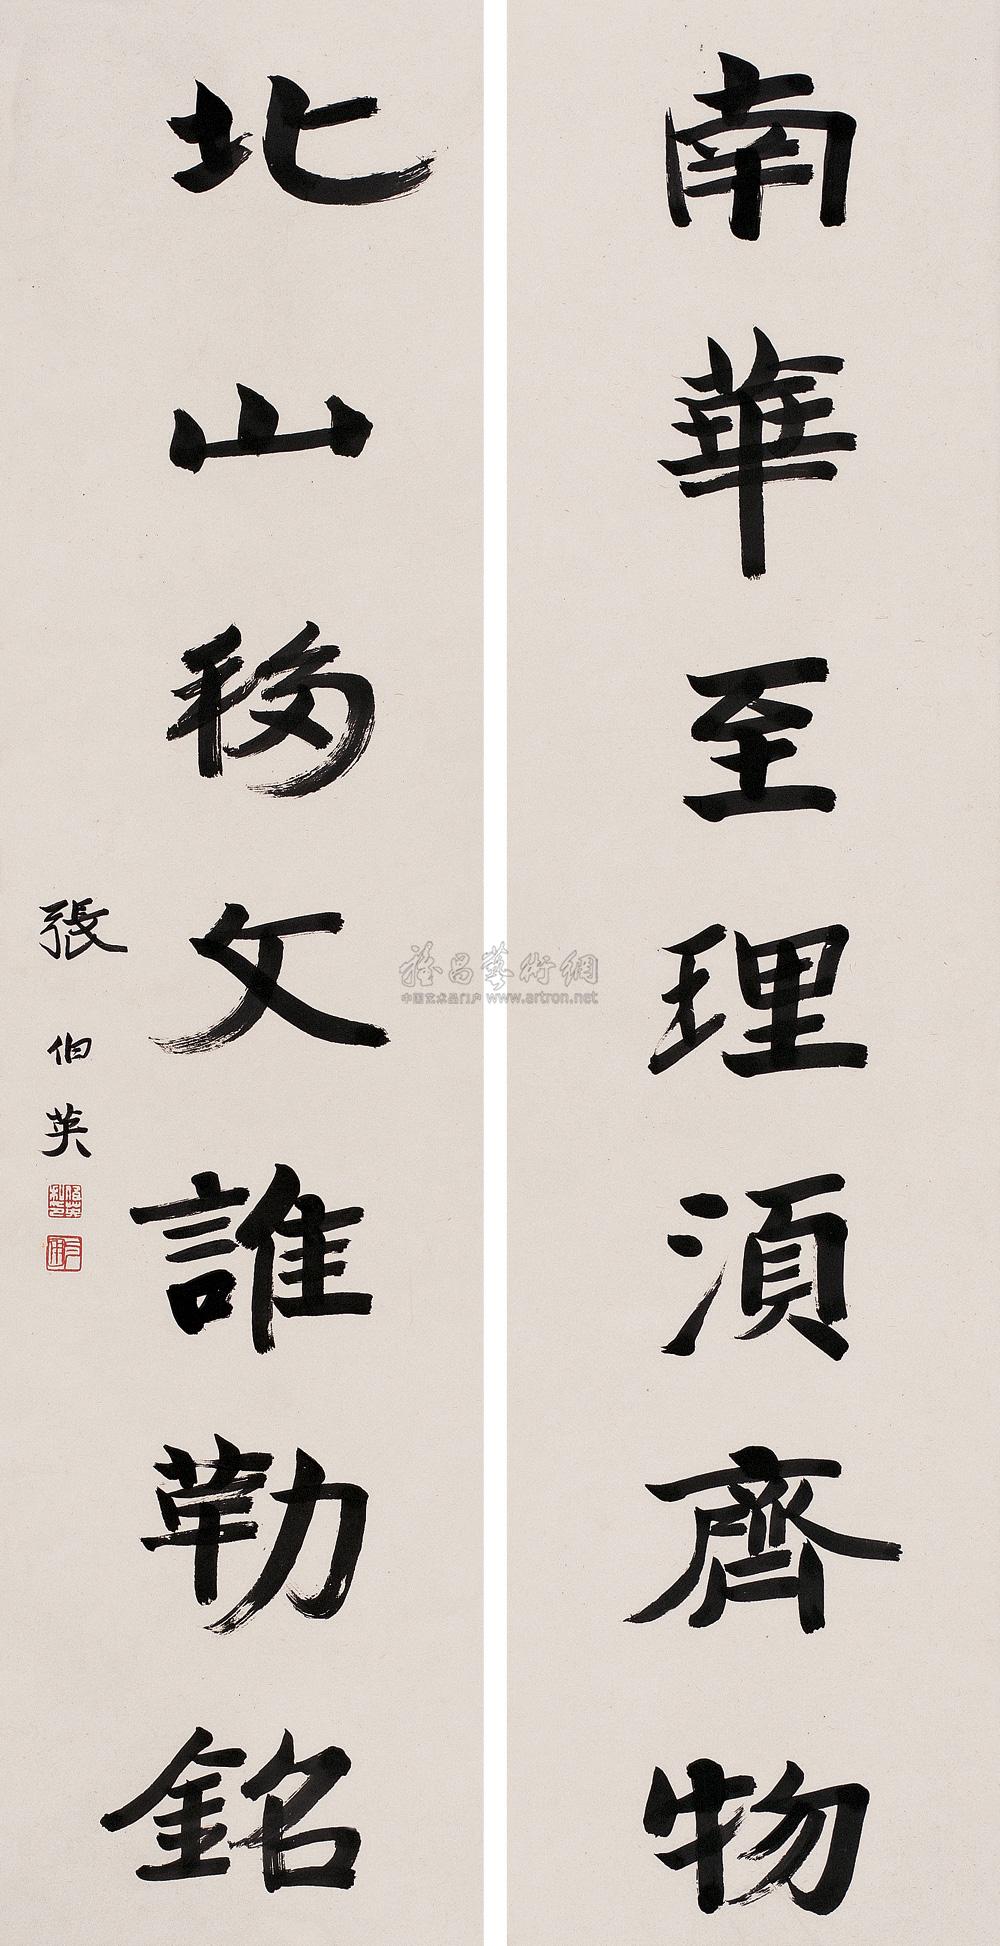 南華至理須齊物
北山移文誰勒銘
張伯英
雅昌藝術網
中国艺术品门户 www.artron.net